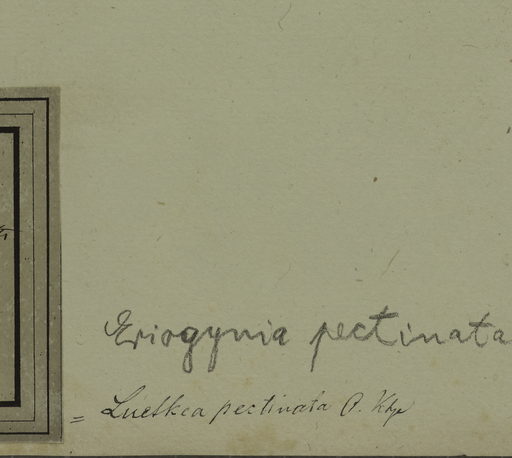 Eriogynia pectinata
= Luetkea pectinata O. Ktze